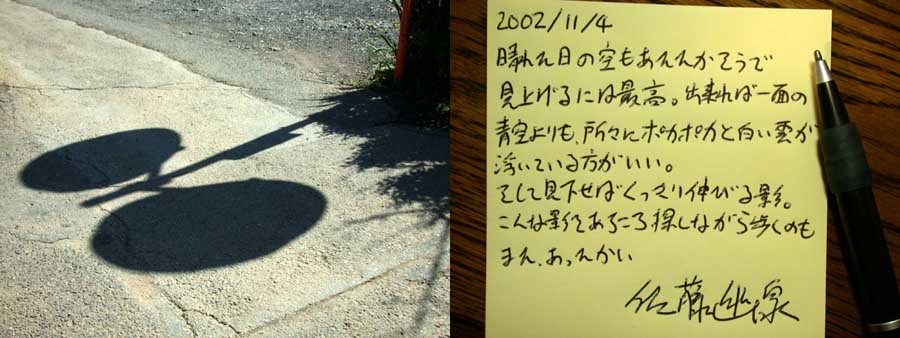 2002/11/4
晴れた日の空もあたたかそうで
見上げるには最高。出来れば一面の
青空よりも、所々にポカポカと白い雲が
浮いている方がいい。
そして見下せばくっきり伸びる影。
こんな影をあちこち探しながら歩くのも
また、あったかい
佐藤